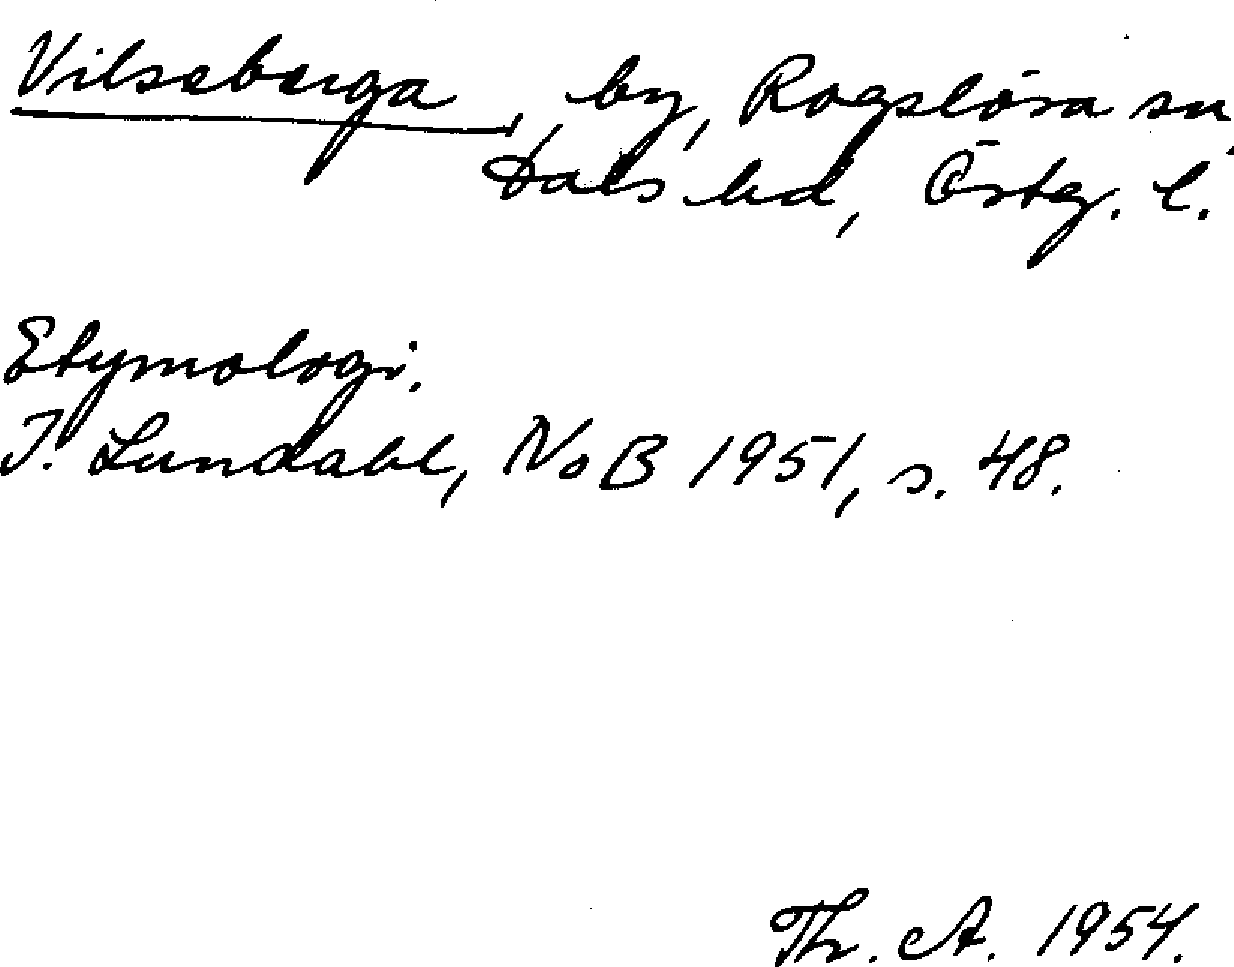 Vilseberga, by, Rogslösa sn,
Dals hd, Östg. l.
Etymologi.
I. Lundahl, NoB 1951, s. 48.
Th. A. 1954.